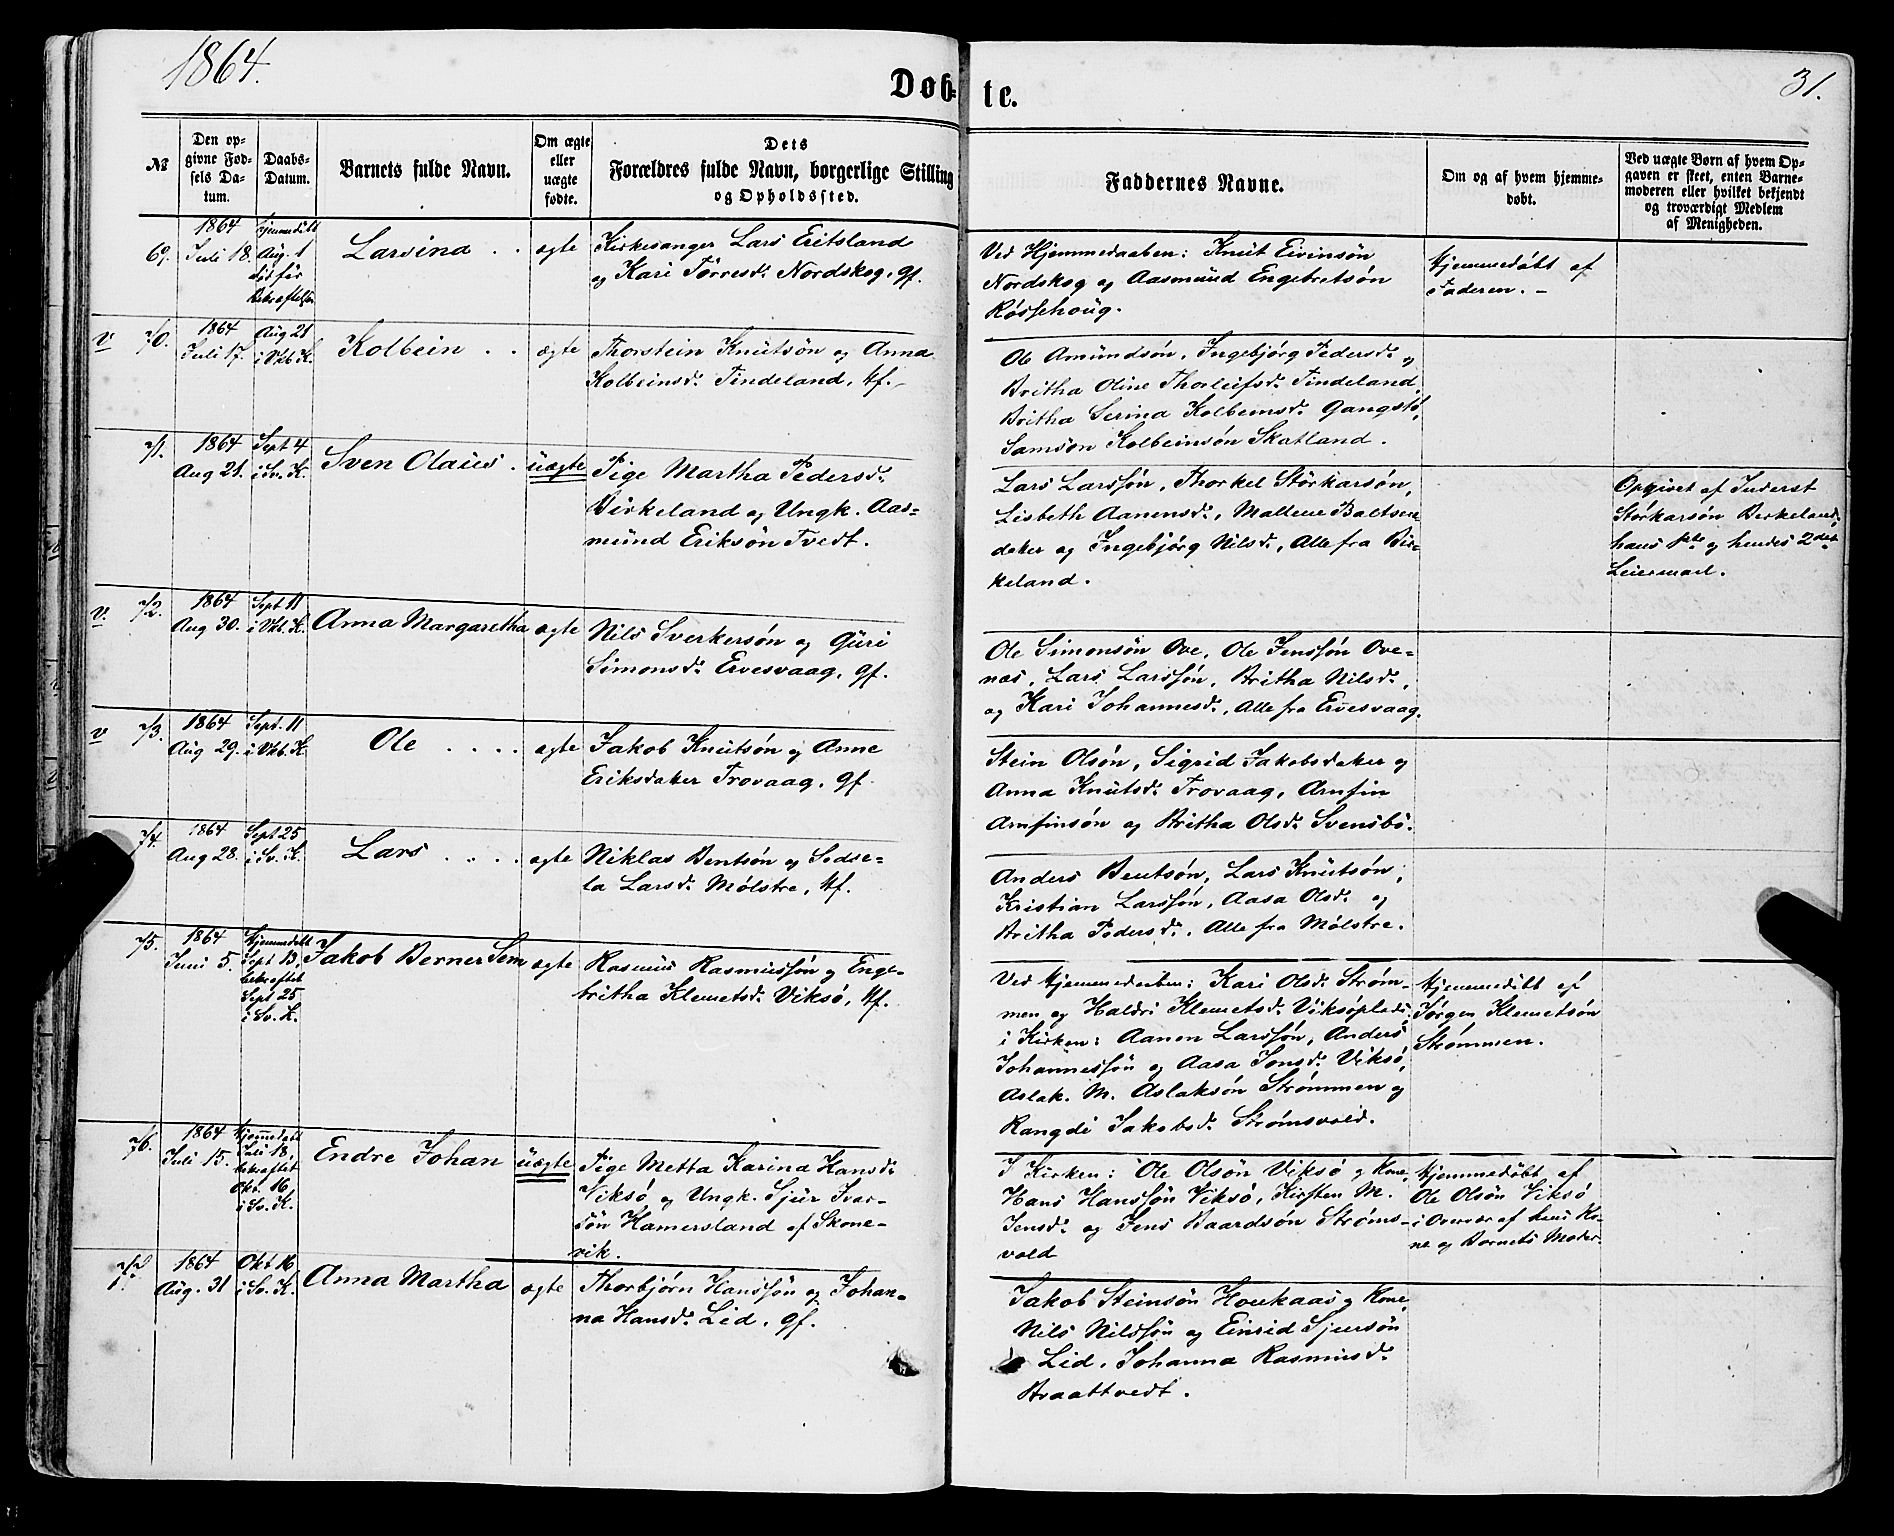 1864.
Døb-
te.
31.
№
Den op-
givne Fød-
sels Da-
tum.
Daabs-
Datum.
Barnets fulde Navn.
Om ægte
eller
uægte
fødte.
Dets
Forældres fulde Navn, borgerlige Stilling
og Opholdssted.
Faddernes Navne.
Om og af hvem hjemme-
døbt.
Ved uægte Børn af hvem Op-
gaven er skeet, enten Barne-
moderen eller hvilket bekjendt
og troværdigt Medlem
af Menigheden.
69.
1864
Juli 18.
Hjemmedöbt
Aug. 1
död för
Bekræftelsen
Larsina . .
ægte
Kirkesanger Lars Eritsland
og Kari Törresd. Nordskog, gf.
Ved Hjemmedaaben: Knut Eivinsön
Nordskog og Aasmund Engebretsön
Røssehoug.
Hjemmedöbt af
Faderen. –
v
70.
1864
Juli 17.
Aug 21
i Vkb. K.
Kolbein . .
ægte
Thorstein Knutsön og Anna
Kolbeinsd. Tindeland, Kf.
Ole Amundsøn, Ingebjørg Pedersd. og
Britha Oline Thorleifsd. Tindeland,
Britha Serina Kolbeinsd. Gangstö,
Samson Kolbeinsön Skatland.
71.
1864
Aug 21.
Sept 4
i Sv. K.
Sven Olaus .
uægte
Pige Martha Pedersd.
Birkeland og Ungk. Aas-
mund Eriksön Tvedt.
Lars Larssøn, Thorkel Störkarsön,
Lisbeth Aanensd., Mallene Baltsers-
datter og Ingebjørg Nilsd., Alle fra Bir-
keland.
Opgivet af Inderst
Störkarsön Berkeland,
hans 1ste og hendes 2det
Leiermaal.
v.
72.
1864
Aug 30.
Sept 11
i Vkb. K.
Anna Margaretha
ægte
Nils Sverkersøn og Guri
Simonsd. Ervesvaag, gf.
Ole Simonsön Ove, Ole Jenssön Ove-
næs, Lars Larssön, Britha Nilsd.,
og Kari Johannesd., Alle fra Ervesvaag.
v
73.
1864
Aug 29.
Sept. 11
i Vkb. K.
Ole . . . .
ægte
Jakob Knutsøn og Anne
Eriksdatter Trovaag, gf.
Stein Olsön, Sigrid Jakobsdatter og
Anna Knutsd. Trovaag, Arnfin
Arnfinsøn og Britha Olsd. Svensbö.
74.
1864
Aug 28.
Sept 25
i Sv. K.
Lars . . . .
ægte
Niklas Bentsøn og Sedse-
la Larsd. Mølstre, Kf.
Anders Bentsön, Lars Knutsön,
Kristian Larssön, Aasa Olsd. og
Britha Pedersd., Alle fra Mölstre.
75.
1864
Juni 5.
Hjemmedöbt
Sept 13,
bekræftet
Sept 25
i Sv. K.
Jakob Berner Sem
ægte
Rasmus Rasmussön og Enge-
britha Klemetsd. Viksö, Kf.
Ved Hjemmedaaben: Kari Olsd. Ström-
men og Haldri Klemetsd. Viksöplads,
i Kirken: Aanen Larssön, Anders
Johannessön og Aasa Jonsd. Viksö,
Aslak. M. Aslaksön Strömmen og
Rangdi Jakobsd. Strömsvold.
Hjemmedöbt af
Jørgen Klemetsön
Strömmen.
76.
1864
Juli 15.
Hjemmedöbt
Juli 18,
bekræftet
Okt. 16
i Sv. K.
Endre Johan
uægte
Pige Metta Karina Hansd.
Viksö og Ungk. Sjur Ivar-
sön Hamersland af Skone-
vik.
I Kirken: Ole Olsön Viksö og Kone,
Hans Hanssön Viksö, Kirsten M.
Jensd. og Jens Baardsön Ströms-
vold
Hjemmedöbt af
Ole Olsön Viksö
i Overvær af hans Ko-
ne og Barnets Moder.
77.
1864
Aug. 31
Okt 16
i Sv. K.
Anna Martha
ægte
Thorbjørn Hanssön og Johan-
na Hansd. Lid, gf.
Jakob Steinsön Houkaas og Kone,
Nils Nilssön og Einrid Sjursön
Lid, Johanna Rasmusd.
Braattvedt.